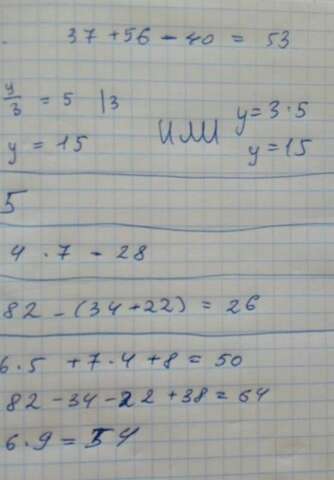 37 + 56 - 40 = 53
y/3 = 5 |3
y = 15
или
y = 3 · 5
y = 15
5
4 · 7 - 28
82 - (34 + 22) = 26
6 · 5 + 7 · 4 + 8 = 50
82 - 34 - 22 + 38 = 64
6 · 9 = 54